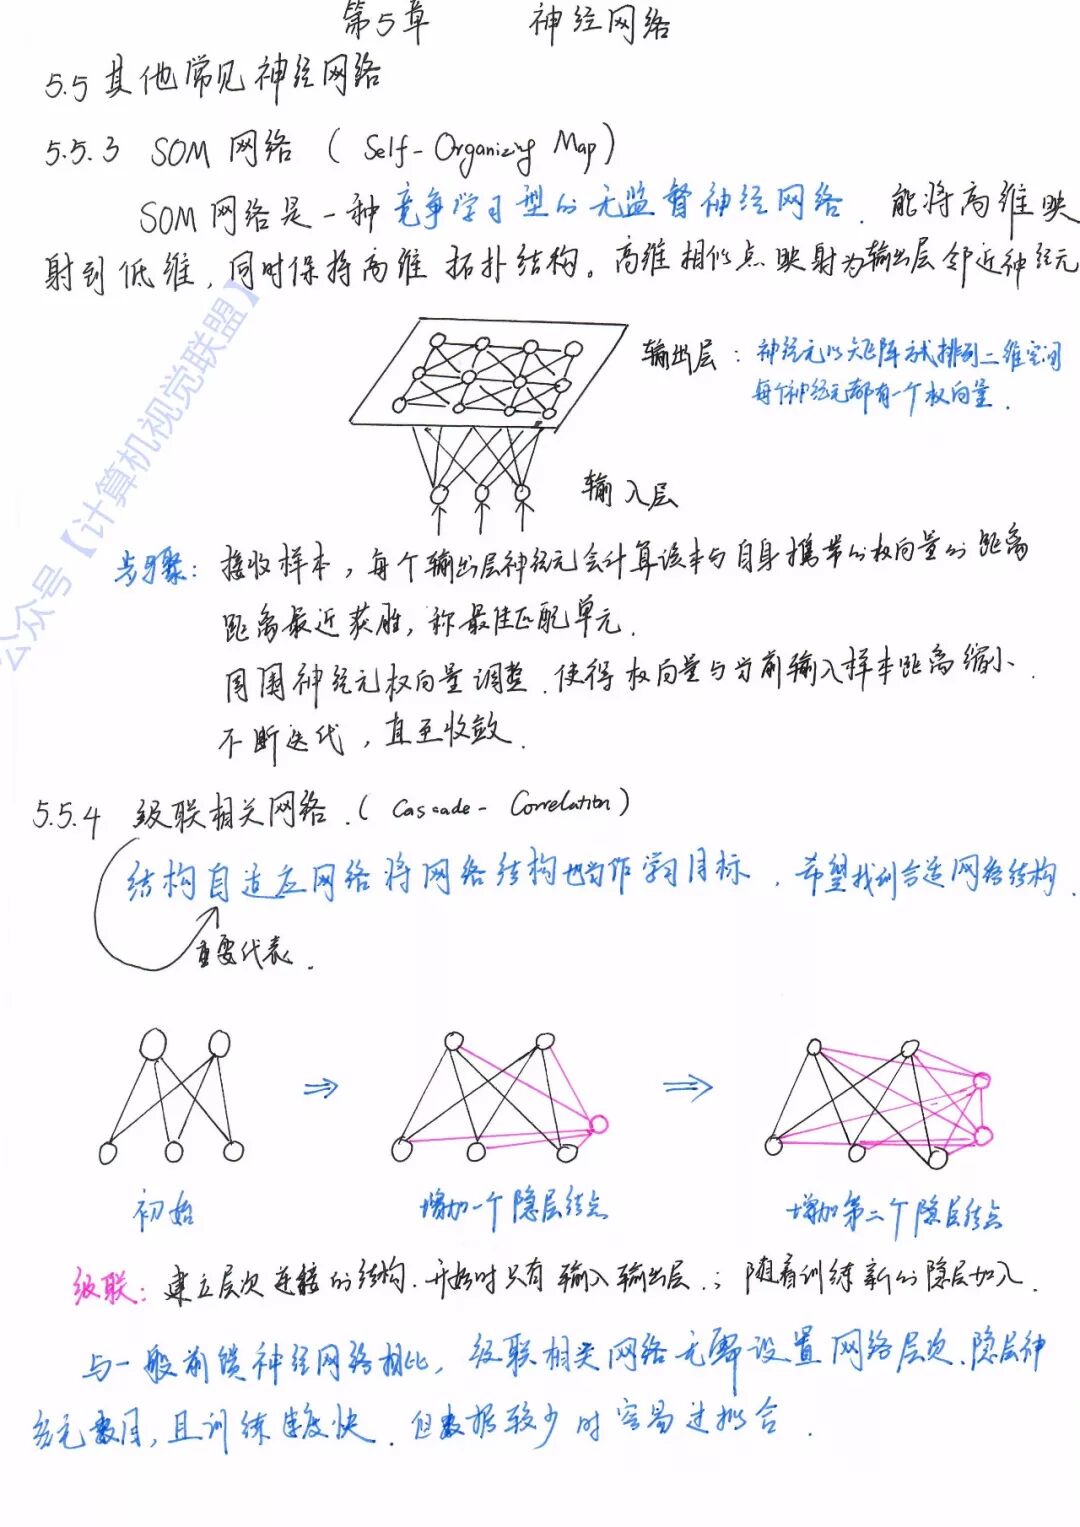 第5章 神经网络
5.5 其他常见神经网络
5.5.3 SOM 网络 ( Self-Organizing Map)
SOM 网络是一种竞争学习型的无监督神经网络. 能将高维映
射到低维, 同时保持高维拓扑结构。高维相似点映射为输出层邻近神经元
输出层: 神经元以矩阵方式排列二维空间
每个神经元都有一个权向量.
输入层
公众号【计算机视觉联盟】
步骤: 接收样本, 每个输出层神经元会计算该本与自身携带的权向量的距离
距离最近获胜, 称最佳匹配单元.
周围神经元权向量调整. 使得权向量与当前输入样本距离缩小.
不断迭代, 直至收敛.
5.5.4 级联相关网络. ( Cascade-Correlation)
结构自适应网络将网络结构也当作学习目标. 希望找到合适网络结构.
重要代表.
初始
增加一个隐层结点
增加第二个隐层结点
级联: 建立层次连接的结构. 开始时只有输入输出层.; 随着训练新的隐层加入.
与一般前馈神经网络相比, 级联相关网络无需设置网络层次、隐层神
经元数目, 且训练速度快. 但数据较少时容易过拟合.